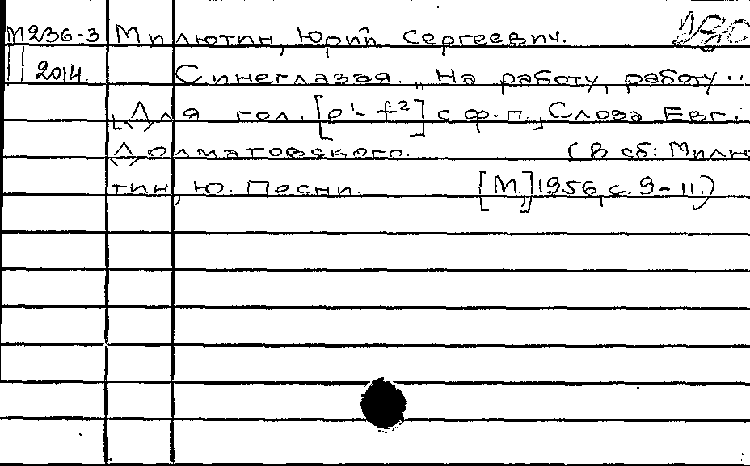 М236-3 Милютин, Юрий Сергеевич.
2014. Синеглазая. „На работу, работу...
[Для гол. [e¹- f²] с ф.-п., Слова Евг.
Долматовского. (В сб: Милю-
тин, Ю. Песни. [М,] 1956, с. 9-11.)